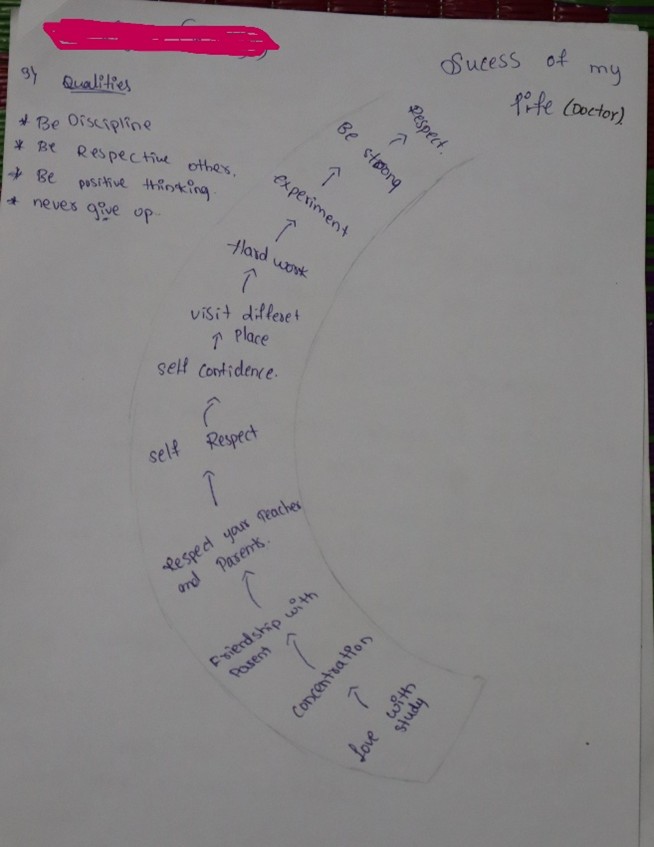 Sucess of my
life (Doctor).
9) Qualities
* Be Discipline
* Be Respective other.
* Be positive thinking.
* never give up.
Respect.
Be strong
experiment
Hard work
visit differet
Place
self Confidence.
self Respect
Respect your Teacher
and Parents.
Friendship with
Parent
Concentration
Love with
study